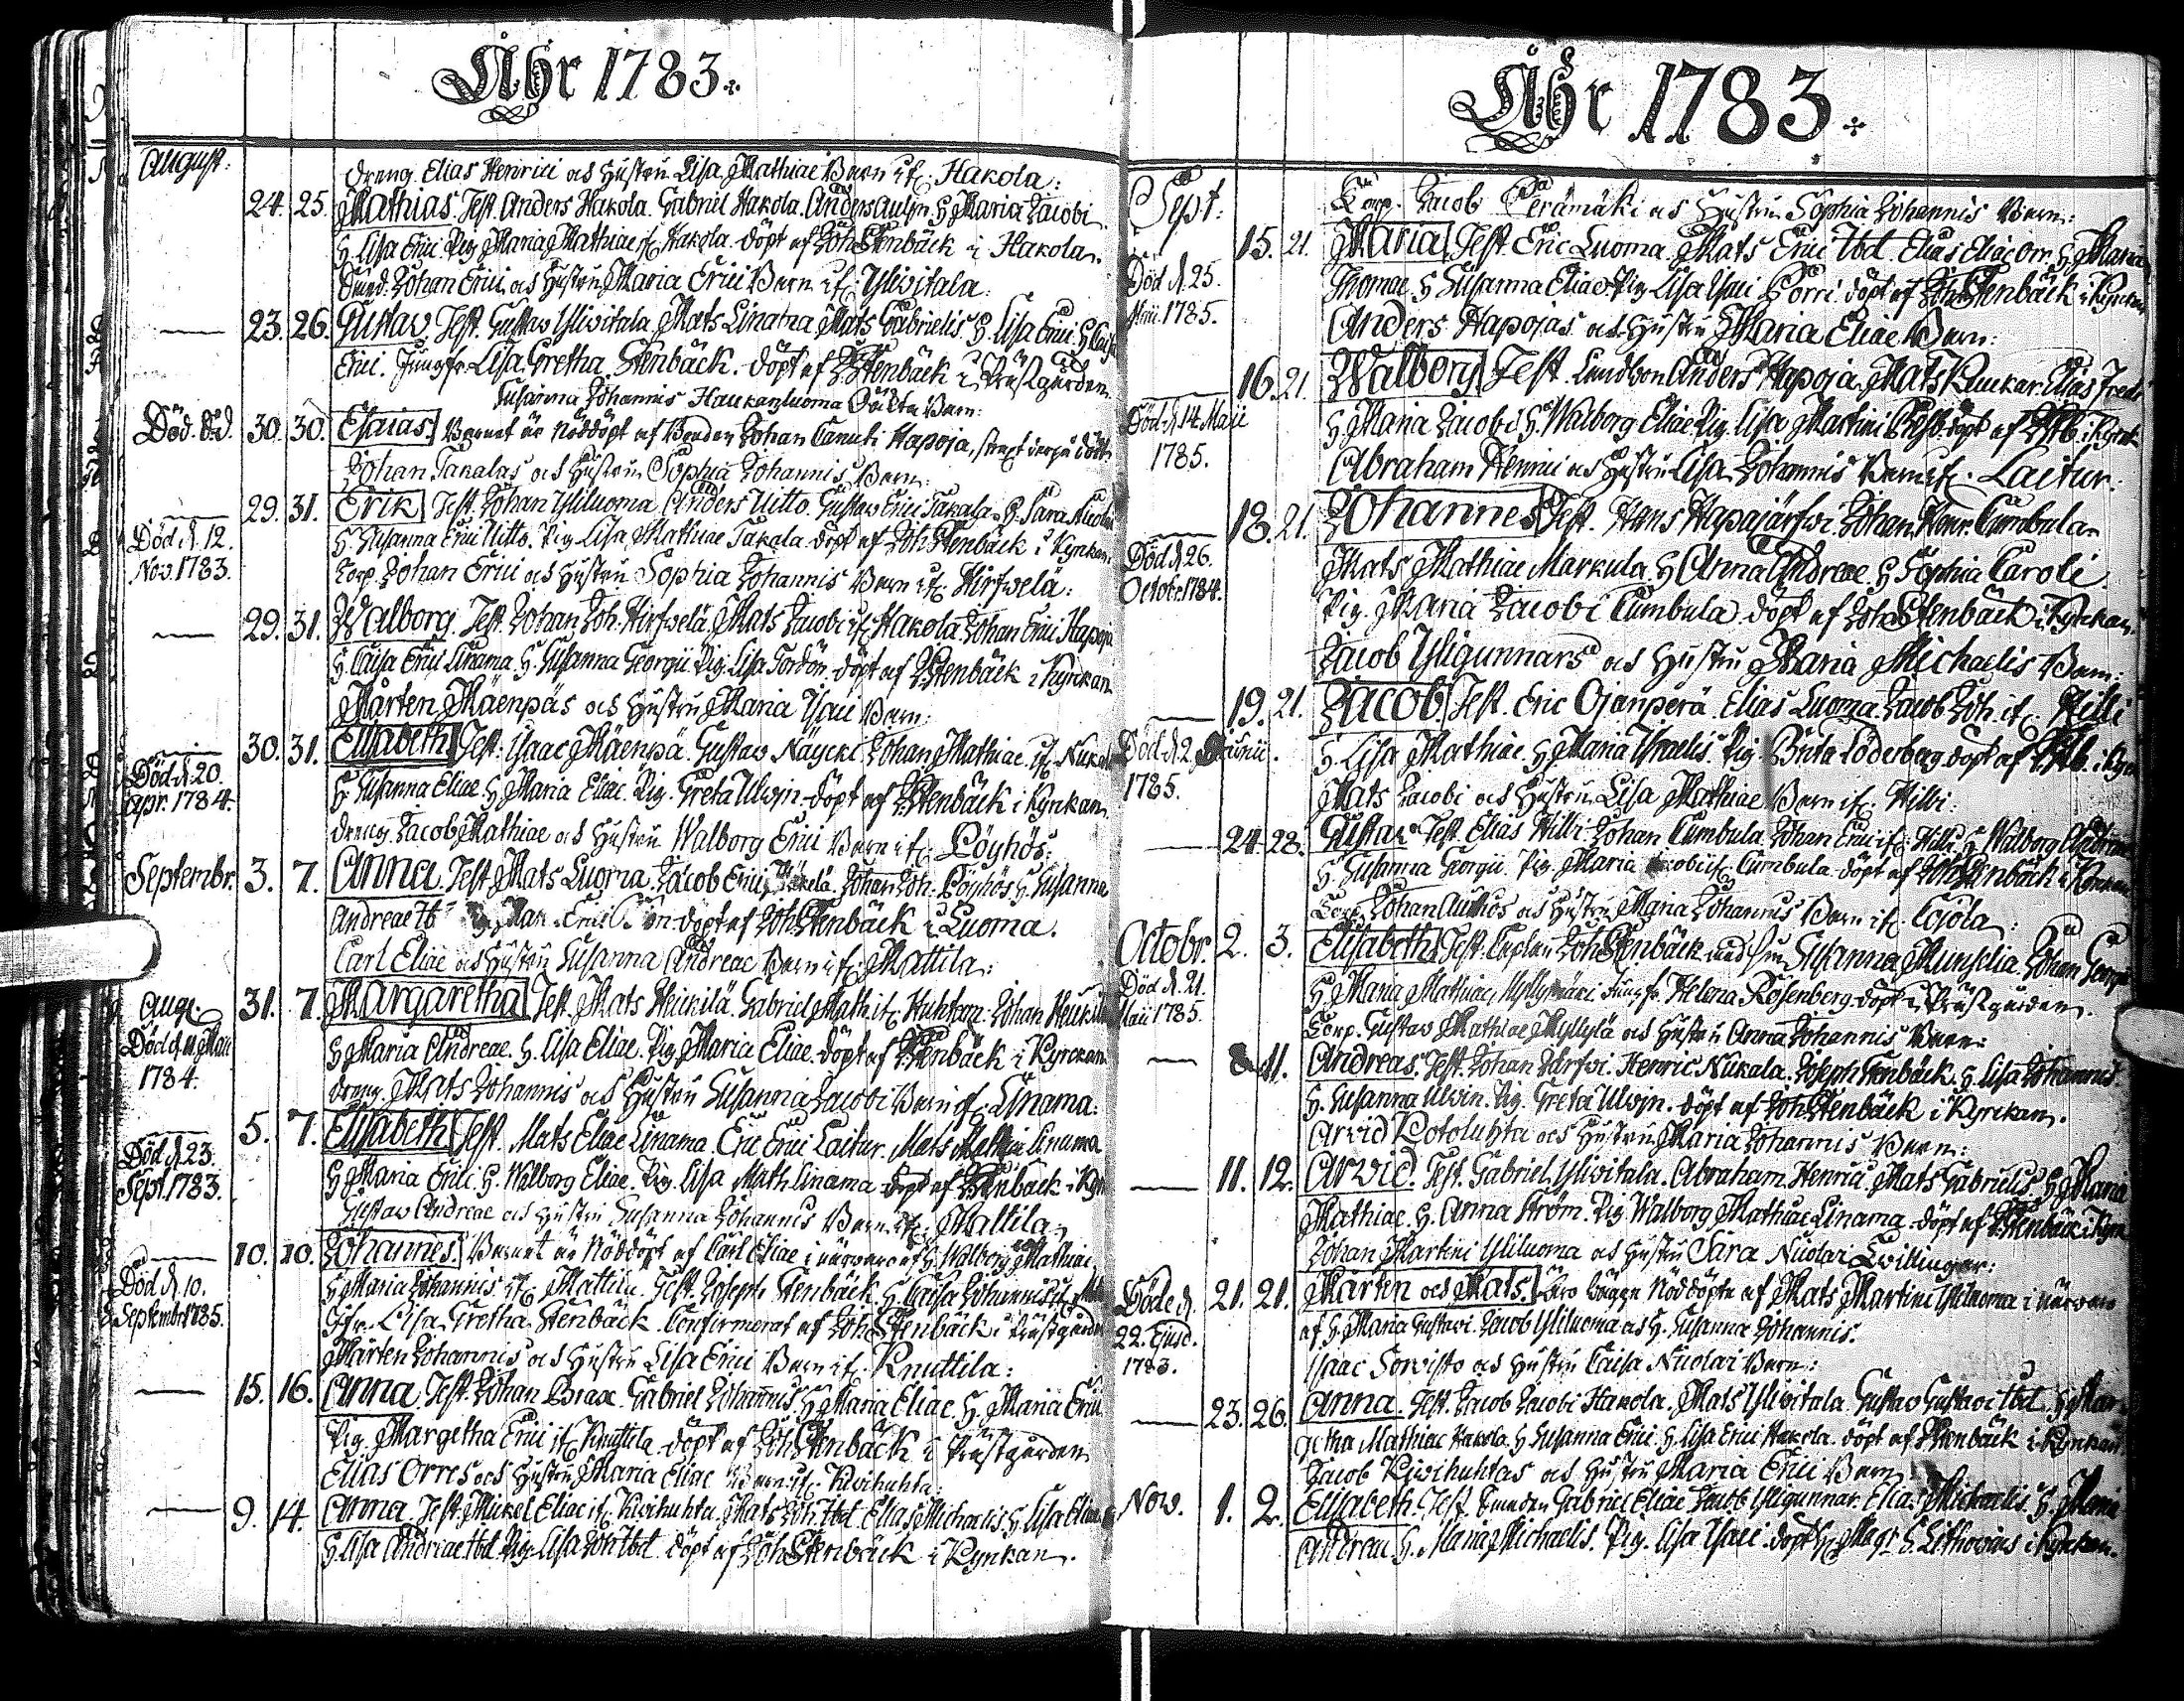 Åhr 1783.
August:
Dreng. Elias Henrici och Hustru Lisa Mathiae Barn if. Hakola:
24. 25. Mathias. Test. Anders Hakola. Gabriel Hakola. Anders H Maria Jacobi
H. Lisa Erici. Pig. Maria Mathiae if. Hakola. döpt af Joh Stenbäck i Hakola.
Johan Erici och Hustru Maria Erici Barn if. Yliwitala:
23. 26. Gustav. Test. Gustav Yliwitala Mats Linama Mats Gabrielis. H. Lisa Erici. H Caisa
Erici. Jungfr. Lisa Gretha Stenbäck. döpt af J Stenbäck i Prästgården
Susanna Johannis Haukangluoma Oäkta Barn:
Död. d.d. 30. 30. Esaias. Barnet är Nöddöpt af Bonden Johan Canuti Hapoja, strext derpå dödt.
Johan Takalas och Hustru Sophia Johannis Barn:
29. 31. Erik Test. Johan Yliluoma Anders Uitto. Gustav Erici Takala. H. Sara Nicolai
Död d. 12. Nov. 1783.
H. Susanna Erici Uitto. Pig. Lisa Mathiae Takala döpt af Joh Stenbäck i Kyrckan
Corp. Johan Erici och Hustru Sophia Johannis Barn if. Hirfwelä:
29. 31. Walborg. Test. Johan Joh. Hirfwelä. Mats Jacobi if. Hakola. Johan Erici Hapoja
H. Caisa Erici Linama. H. Susanna Georgii. Pig. Lisa Tordön. döpt af J Stenbäck i Kyrckan
Mårten Mäenpäs och Hustru Maria Isaci Barn:
30. 31. Elisabeth Test. Isaac Mäenpä. Gustav Näycki. Johan Mathiae if.
Död d. 20. Apr. 1784.
H Susanna Eliae. H Maria Eliae. Pig. Greta Ulwin. döpt af J Stenbäck i Kyrckan.
dreng Jacob Mathiae och Hustru Walborg Erici Barn if. Löyhös:
Septembr. 3. 7. Anna. Test. Mats Luoma. Jacob Erici Johan Joh. Löyhös H. Susanna
Andreae döpt af Joh Stenbäck i Luoma.
Carl Eliae och Hustru Susanna Andreae Barn if. Mattila:
Aug. 31. 7. Margaretha Test. Mats Heickilä. Gabriel Math. if. Huhtan: Johan
Död d. 11. 1784.
H Maria Andreae. H. Lisa Eliae. Pig. Maria Eliae. döpt af J Stenbäck i Kyrckan
dreng. Mats Johannis och Hustru Susanna Jacobi Barn if. Linama:
5. 7. Elisabeth Test. Mats Eliae Linama. Eric Erici Laitur. Mats Linama
Död d. 23. Sept. 1783.
H Maria Erici. H. Walborg Eliae. Pig. Lisa Math. Linama döpt af J Stenbäck i
Gustav Andreae och Hustru Susanna Johannis Barn if. Mattila
10. 10. Johannes. Barnet är Nöddöpt af Carl Eliae i närwaro af H Walborg Mathiae,
Död d. 10. Septembr 1785.
H Maria Johannis if. Mattila. Test. Joseph Stenbäck. H. Caisa Johannis
Jfr. Lisa Gretha Stenbäck. Confirmerat af Joh Stenbäck i
Mårten Johannis och Hustru Lisa Erici Barn if. Knuttila:
15. 16. Anna Test. Johan Brax. Gabriel Johannis. H Maria Eliae. H. Maria Erici
Pig. Margetha Erici if. Knuttila. döpt af Joh Stenbäck i Prästgården
Elias Orres och Hustru Maria Eliae Barn if. Kiwihuhta:
9. 14. Anna. Test. Mickel Eliae if. Kiwihuhta. Mats Joh. Ibd. Elias Michaelis H. Lisa
H. Lisa Andreae Ibd. Pig. Lisa Joh. Ibd. döpt af Joh Stenbäck i Kyrckan.
Åhr 1783.
Sept:
Corp. Jacob Perämäki och Hustru Sophia Johannis Barn:
15. 21. Maria Test. Eric Luoma. Mats Erici Ibd. Elias Eliae Orr. H. Maria
Död d. 25. Maii. 1785.
Thomae. H Susanna Eliae. Pig Lisa Isaci Porri. döpt af Joh Stenbäck i
Anders Hapojas och Hustru Maria Eliae Barn:
16. 21. Walborg Test. Anders Hapoja. Mats
Död d. 14. Maii 1785.
H Maria Jacobi H. Walborg Eliae Pig. Lisa Martini
Abraham Henrici och Hustru Lisa Johannis Barn if. Laitur.
18. 21. Johannes Test. Hans Hapajärfwi Johan Henr. Cumbula
Död d. 26. October 1784.
Mats Mathiae Markula. H Anna Andreae. H Sophia Caroli
Pig. Maria Jacobi Cumbula döpt af Joh Stenbäck i Kyrckan.
Jacob Yligunnars och Hustru Maria Michaelis Barn:
19. 21. Jacob Test. Eric Ojanperä Elias Luoma Jacob Joh. if. Hilli
Död d. 2. Junii. 1785.
H. Lisa Mathiae. H Maria Israelis. Pig. Brita Söderberg. döpt af
Mats Jacobi och Hustru Lisa Mathiae Barn if. Hilbi:
24. 28. Gustav Test. Elias Hilbi Johan Cumbula Johan Erici if. H Walborg Andreae
H. Susanna Georgii Pig. Maria if. Cumbula. döpt af Joh Stenbäck i
Corp. Johan och Hustru Maria Johannis Barn if.
Octobr. 2. 3. Elisabeth Test. Joh Stenbäck med Fru Susanna Johan
Död d. 21. Maii 1785.
H Maria Mathiae, Myllymäki Jungfr. Helena Rosenberg. döpt i Prästgården.
Corp. Gustav Mathiae Myllylä och Hustru Anna Johannis Barn:
8. 11. Andreas. Test. Johan Järfwi. Henric Nickala. Joseph Stenbäck. H. Lisa Johannis.
H. Susanna Ulwin. Pig. Greta Ulwin. döpt af Joh Stenbäck i Kyrckan.
Arvid Kotoluhta och Hustru Maria Johannis Barn:
11. 12. Arvid. Test. Gabriel Yliwitala. Abraham Henrici. Mats Gabrielis. H Maria
Mathiae. H. Anna Ström. Pig. Walborg Mathiae Linama. döpt af
Johan Martini Yliluoma och Hustru Sara Nicolai Twillingar:
21. 21. Mårten och Mats. äro bägge Nöddöpte af Mats Martini Yliluoma i närwaro
Döde d. 22. Ejusd. 1783.
af H. Maria Gustavi. Jacob Yliluoma och H. Susanna Johannis.
Isaac Sorvisto och Hustru Caisa Nicolai Barn:
23. 26. Anna. Test. Jacob Jacobi Hakola. Mats Yliwitala Gustav Gustavi Ibd. H Mar
getha Mathiae Hakola. H Susanna Erici. H. Lisa Erici Hakola. döpt af J Stenbäck i Kyrckan
Jacob Kiwihuhtas och Hustru Maria Erici Barn
Nov. 1. 2. Elisabeth. Test. Gabriel Eliae Jacob Yligunnar. Elias Michaelis. H. Maria
Andreae H. Maria Michaelis. Pig. Lisa Isaci. döpt af Magr. Lithovius i Kyrckan.